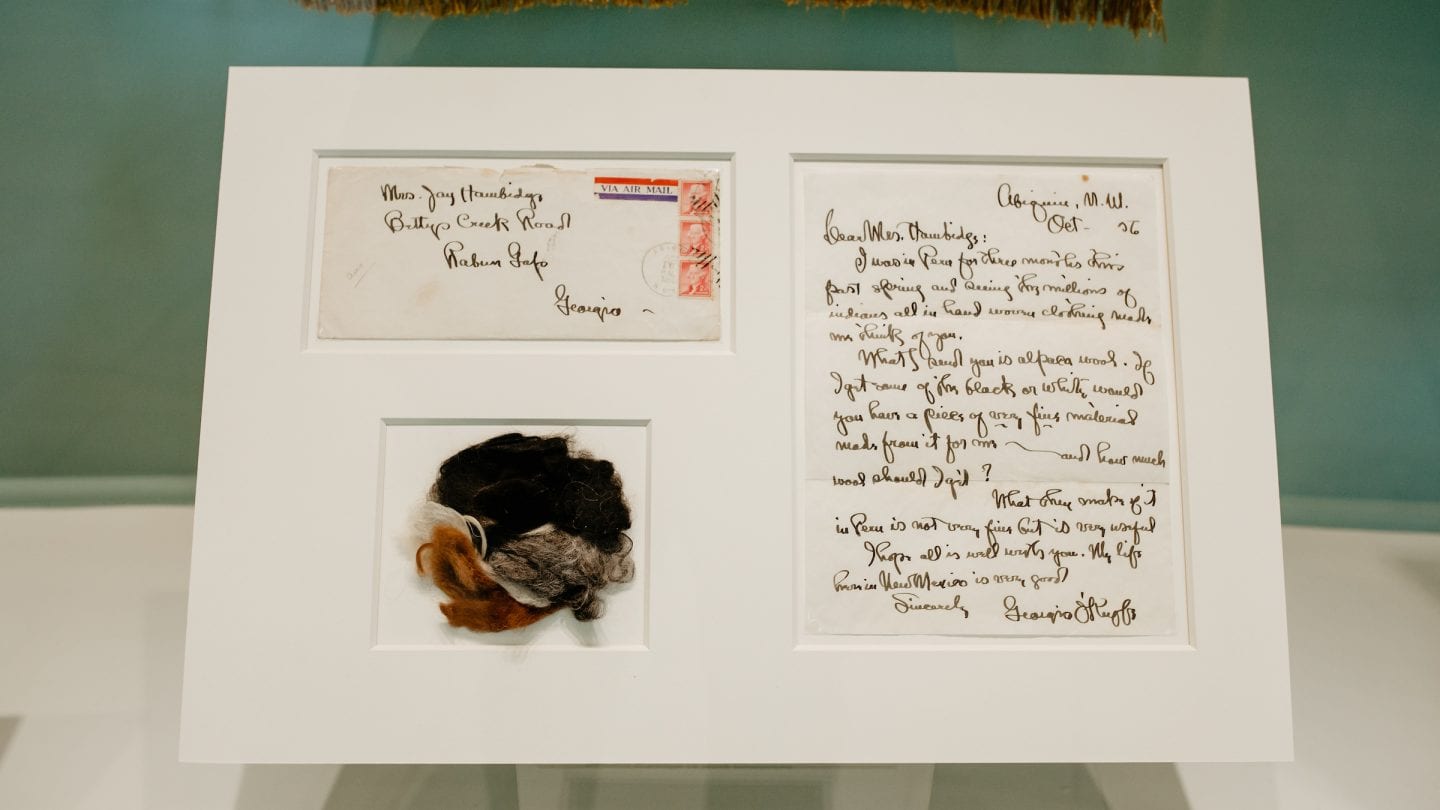 Mrs. Jay Hambidge
Bettys Creek Road
Rabun Gap
Georgia
VIA AIR MAIL
Abiquiu, N.M.
Oct- 56
Dear Mrs. Hambidge:
I was in Peru for three months this
past spring and seeing the millions of
indians all in hand woven clothing made
me think of you.
What I send you is alpaca wool. If
I get some of the black or white would
you have a piece of very fine material
made from it for me — and how much
wool should I get?
What they make of it
in Peru is not very fine but is very useful
I hope all is well with you. My life
here in New Mexico is very good
Sincerely Georgia O'Keeffe